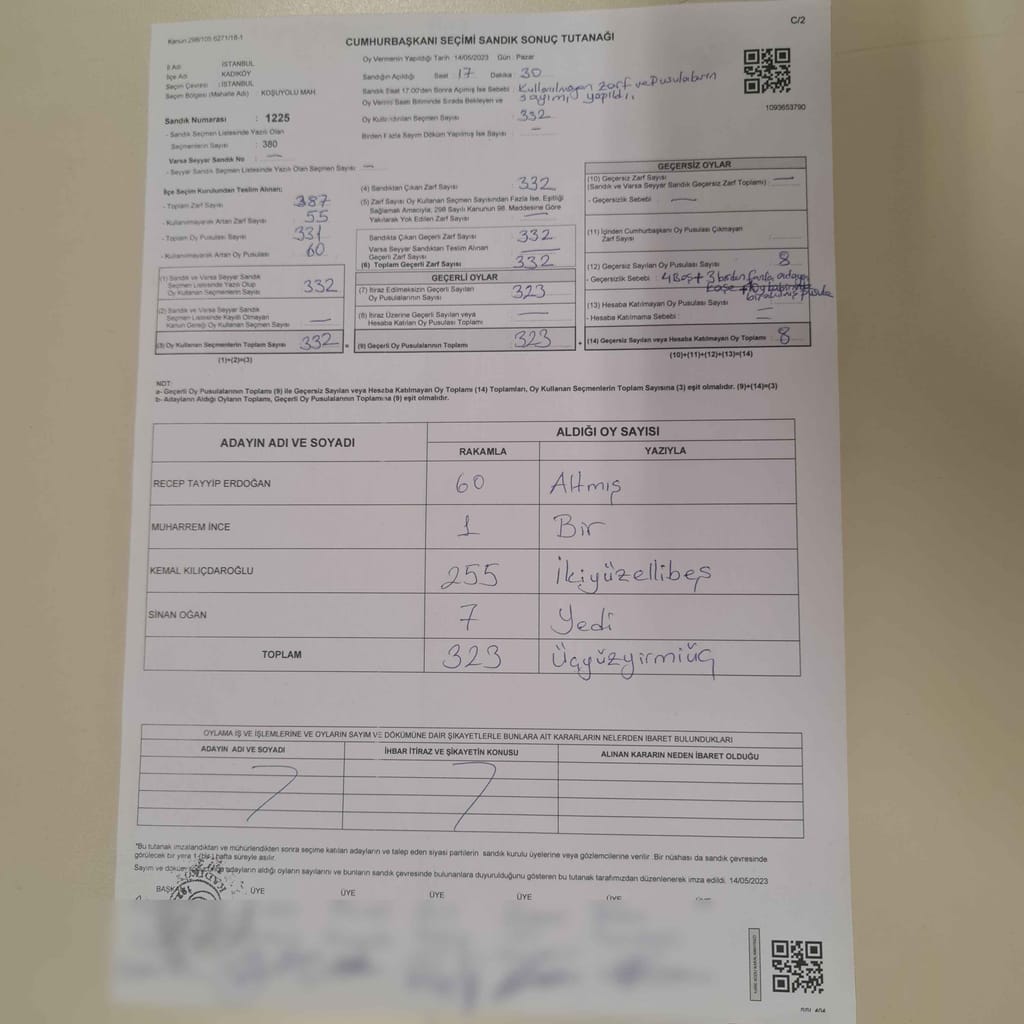 C/2
Kanun 298/105 6271/16-1
CUMHURBAŞKANI SEÇİMİ SANDIK SONUÇ TUTANAĞI
İl Adı : İSTANBUL
İlçe Adı : KADIKÖY
Seçim Çevresi : İSTANBUL
Seçim Bölgesi (Mahalle Adı) : KOŞUYOLU MAH.
Oy Vermenin Yapıldığı Tarih 14/05/2023 Gün : Pazar
Sandığın Açıldığı Saat 17 Dakika 30
Sandık Saat 17:00'den Sonra Açılmış İse Sebebi : Kullanılmayan zarf ve Pusulaların
sayımı yapıldı.
Oy Verme Saati Bitiminde Sırada Bekleyen ve
Oy Kullandırılan Seçmen Sayısı : 332
Birden Fazla Sayım Döküm Yapılmış İse Sayısı : —
1093653790
Sandık Numarası : 1225
- Sandık Seçmen Listesinde Yazılı Olan
Seçmenlerin Sayısı : 380
Varsa Seyyar Sandık No : —
- Seyyar Sandık Seçmen Listesinde Yazılı Olan Seçmen Sayısı : —
İlçe Seçim Kurulundan Teslim Alınan;
- Toplam Zarf Sayısı 387
- Kullanılmayarak Artan Zarf Sayısı 55
- Toplam Oy Pusulası Sayısı 331
- Kullanılmayarak Artan Oy Pusulası 60
(1) Sandık ve Varsa Seyyar Sandık
Seçmen Listesinde Yazılı Olup
Oy Kullanan Seçmenlerin Sayısı 332
(2) Sandık ve Varsa Seyyar Sandık
Seçmen Listesinde Kayıtlı Olmayan
Kanun Gereği Oy Kullanan Seçmen Sayısı —
(3) Oy Kullanan Seçmenlerin Toplam Sayısı 332 =
(1)+(2)=(3)
(4) Sandıktan Çıkan Zarf Sayısı : 332
(5) Zarf Sayısı Oy Kullanan Seçmen Sayısından Fazla İse, Eşitliği
Sağlamak Amacıyla; 298 Sayılı Kanunun 98. Maddesine Göre
Yakılarak Yok Edilen Zarf Sayısı —
Sandıkta Çıkan Geçerli Zarf Sayısı : 332
Varsa Seyyar Sandıktan Teslim Alınan
Geçerli Zarf Sayısı —
(6) Toplam Geçerli Zarf Sayısı : 332
GEÇERLİ OYLAR
(7) İtiraz Edilmeksizin Geçerli Sayılan
Oy Pusulalarının Sayısı : 323
(8) İtiraz Üzerine Geçerli Sayılan veya
Hesaba Katılan Oy Pusulası Toplamı : —
(9) Geçerli Oy Pusulalarının Toplamı : 323 +
GEÇERSİZ OYLAR
(10) Geçersiz Zarf Sayısı : —
(Sandık ve Varsa Seyyar Sandık Geçersiz Zarf Toplamı)
- Geçersizlik Sebebi : —
(11) İçinden Cumhurbaşkanı Oy Pusulası Çıkmayan
Zarf Sayısı :
(12) Geçersiz Sayılan Oy Pusulası Sayısı : 8
- Geçersizlik Sebebi : 4 Boş + 3 birden fazla adaya
kaşe +
pusula
(13) Hesaba Katılmayan Oy Pusulası Sayısı : —
- Hesaba Katılmama Sebebi : —
(14) Geçersiz Sayılan veya Hesaba Katılmayan Oy Toplamı : 8
(10)+(11)+(12)+(13)=(14)
NOT:
a- Geçerli Oy Pusulalarının Toplamı (9) ile Geçersiz Sayılan veya Hesaba Katılmayan Oy Toplamı (14) Toplamları, Oy Kullanan Seçmenlerin Toplam Sayısına (3) eşit olmalıdır. (9)+(14)=(3)
b- Adayların Aldığı Oyların Toplamı, Geçerli Oy Pusulalarının Toplamına (9) eşit olmalıdır.
ADAYIN ADI VE SOYADI ALDIĞI OY SAYISI
RAKAMLA YAZIYLA
RECEP TAYYİP ERDOĞAN 60 Altmış
MUHARREM İNCE 1 Bir
KEMAL KILIÇDAROĞLU 255 İkiyüzellibeş
SİNAN OĞAN 7 Yedi
TOPLAM 323 Üçyüzyirmiüç
OYLAMA İŞ VE İŞLEMLERİNE VE OYLARIN SAYIM VE DÖKÜMÜNE DAİR ŞİKAYETLERLE BUNLARA AİT KARARLARIN NELERDEN İBARET BULUNDUKLARI
ADAYIN ADI VE SOYADI İHBAR İTİRAZ VE ŞİKAYETİN KONUSU ALINAN KARARIN NEDEN İBARET OLDUĞU
*Bu tutanak imzalandıktan ve mühürlendikten sonra seçime katılan adayların ve talep eden siyasi partilerin sandık kurulu üyelerine veya gözlemcilerine verilir. Bir nüshası da sandık çevresinde
görülecek bir yere 1 (bir) hafta süreyle asılır.
Sayım ve döküm adayların aldığı oyların sayılarını ve bunların sandık çevresinde bulunanlara duyurulduğunu gösteren bu tutanak tarafımızdan düzenlenerek imza edildi. 14/05/2023
BAŞKAN ÜYE ÜYE ÜYE ÜYE ÜYE